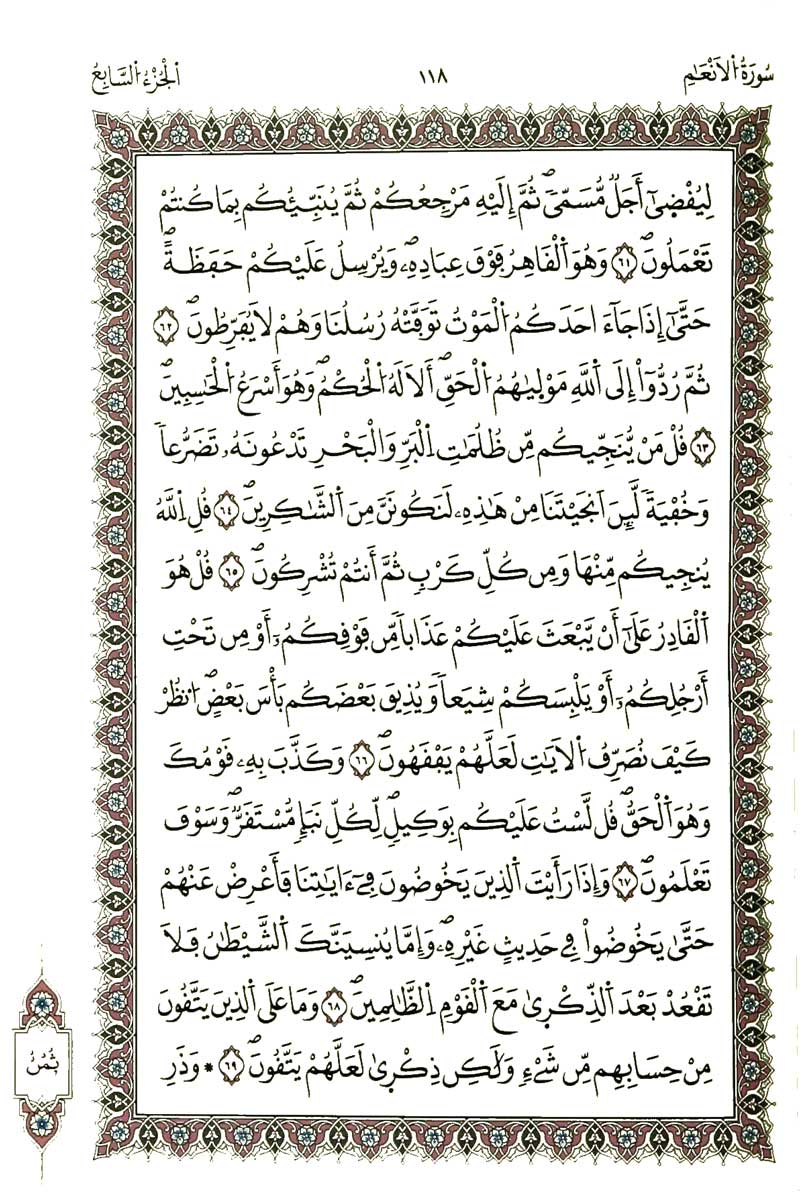 سُورَةُ الْأَنْعَامِ
١١٨
اَلْجُزْءُ السَّابِعُ
لِيُقْضَىٰٓ أَجَلٌ مُّسَمّىٗ ثُمَّ إِلَيْهِ مَرْجِعُكُمْ ثُمَّ يُنَبِّئُكُم بِمَا كُنتُمْ
تَعْمَلُونَ ٦١ وَهُوَ اَلْقَاهِرُ فَوْقَ عِبَادِهِۦ وَيُرْسِلُ عَلَيْكُمْ حَفَظَةً
حَتَّىٰٓ إِذَا جَآءَ احَدَكُمُ اُلْمَوْتُ تَوَفَّتْهُ رُسُلُنَا وَهُمْ لَا يُفَرِّطُونَ ٦٢
ثُمَّ رُدُّوٓاْ إِلَى اَللَّهِ مَوْلَىٰهُمُ اُلْحَقِّ أَلَا لَهُ اُلْحُكْمُ وَهُوَ أَسْرَعُ اُلْحَٰسِبِينَ
٦٣ قُلْ مَنْ يُّنَجِّيكُم مِّن ظُلُمَٰتِ اِلْبَرِّ وَالْبَحْرِ تَدْعُونَهُۥ تَضَرُّعاً
وَخُفْيَةً لَّئِنَ اَنجَيْتَنَا مِنْ هَٰذِهِۦ لَنَكُونَنَّ مِنَ اَلشَّٰكِرِينَ ٦٤ قُلِ اِللَّهُ
يُنجِيكُم مِّنْهَا وَمِن كُلِّ كَرْبٍ ثُمَّ أَنتُمْ تُشْرِكُونَ ٦٥ قُلْ هُوَ
اَلْقَادِرُ عَلَىٰٓ أَنْ يَّبْعَثَ عَلَيْكُمْ عَذَاباً مِّن فَوْقِكُمُۥٓ أَوْ مِن تَحْتِ
أَرْجُلِكُمُۥٓ أَوْ يَلْبِسَكُمْ شِيَعاً وَيُذِيقَ بَعْضَكُم بَأْسَ بَعْضٍ اُنظُرْ
كَيْفَ نُصَرِّفُ اُلْأٓيَٰتِ لَعَلَّهُمْ يَفْقَهُونَ ٦٦ وَكَذَّبَ بِهِۦ قَوْمُكَ
وَهُوَ اَلْحَقُّ قُل لَّسْتُ عَلَيْكُم بِوَكِيلٍ لِّكُلِّ نَبَإٍ مُّسْتَقَرٌّ وَسَوْفَ
تَعْلَمُونَ ٦٧ وَإِذَا رَأَيْتَ اَلذِينَ يَخُوضُونَ فِىٓ ءَايَٰتِنَا فَأَعْرِضْ عَنْهُمْ
حَتَّىٰ يَخُوضُواْ فِى حَدِيثٍ غَيْرِهِۦ وَإِمَّا يُنسِيَنَّكَ اَلشَّيْطَٰنُ فَلَا
تَقْعُدْ بَعْدَ اَلذِّكْرَىٰ مَعَ اَلْقَوْمِ اِلظَّٰلِمِينَ ٦٨ وَمَا عَلَى اَلذِينَ يَتَّقُونَ
مِنْ حِسَابِهِم مِّن شَىْءٍ وَلَٰكِن ذِكْرَىٰ لَعَلَّهُمْ يَتَّقُونَ ٦٩ * وَذَرِ
ثُمُنُ